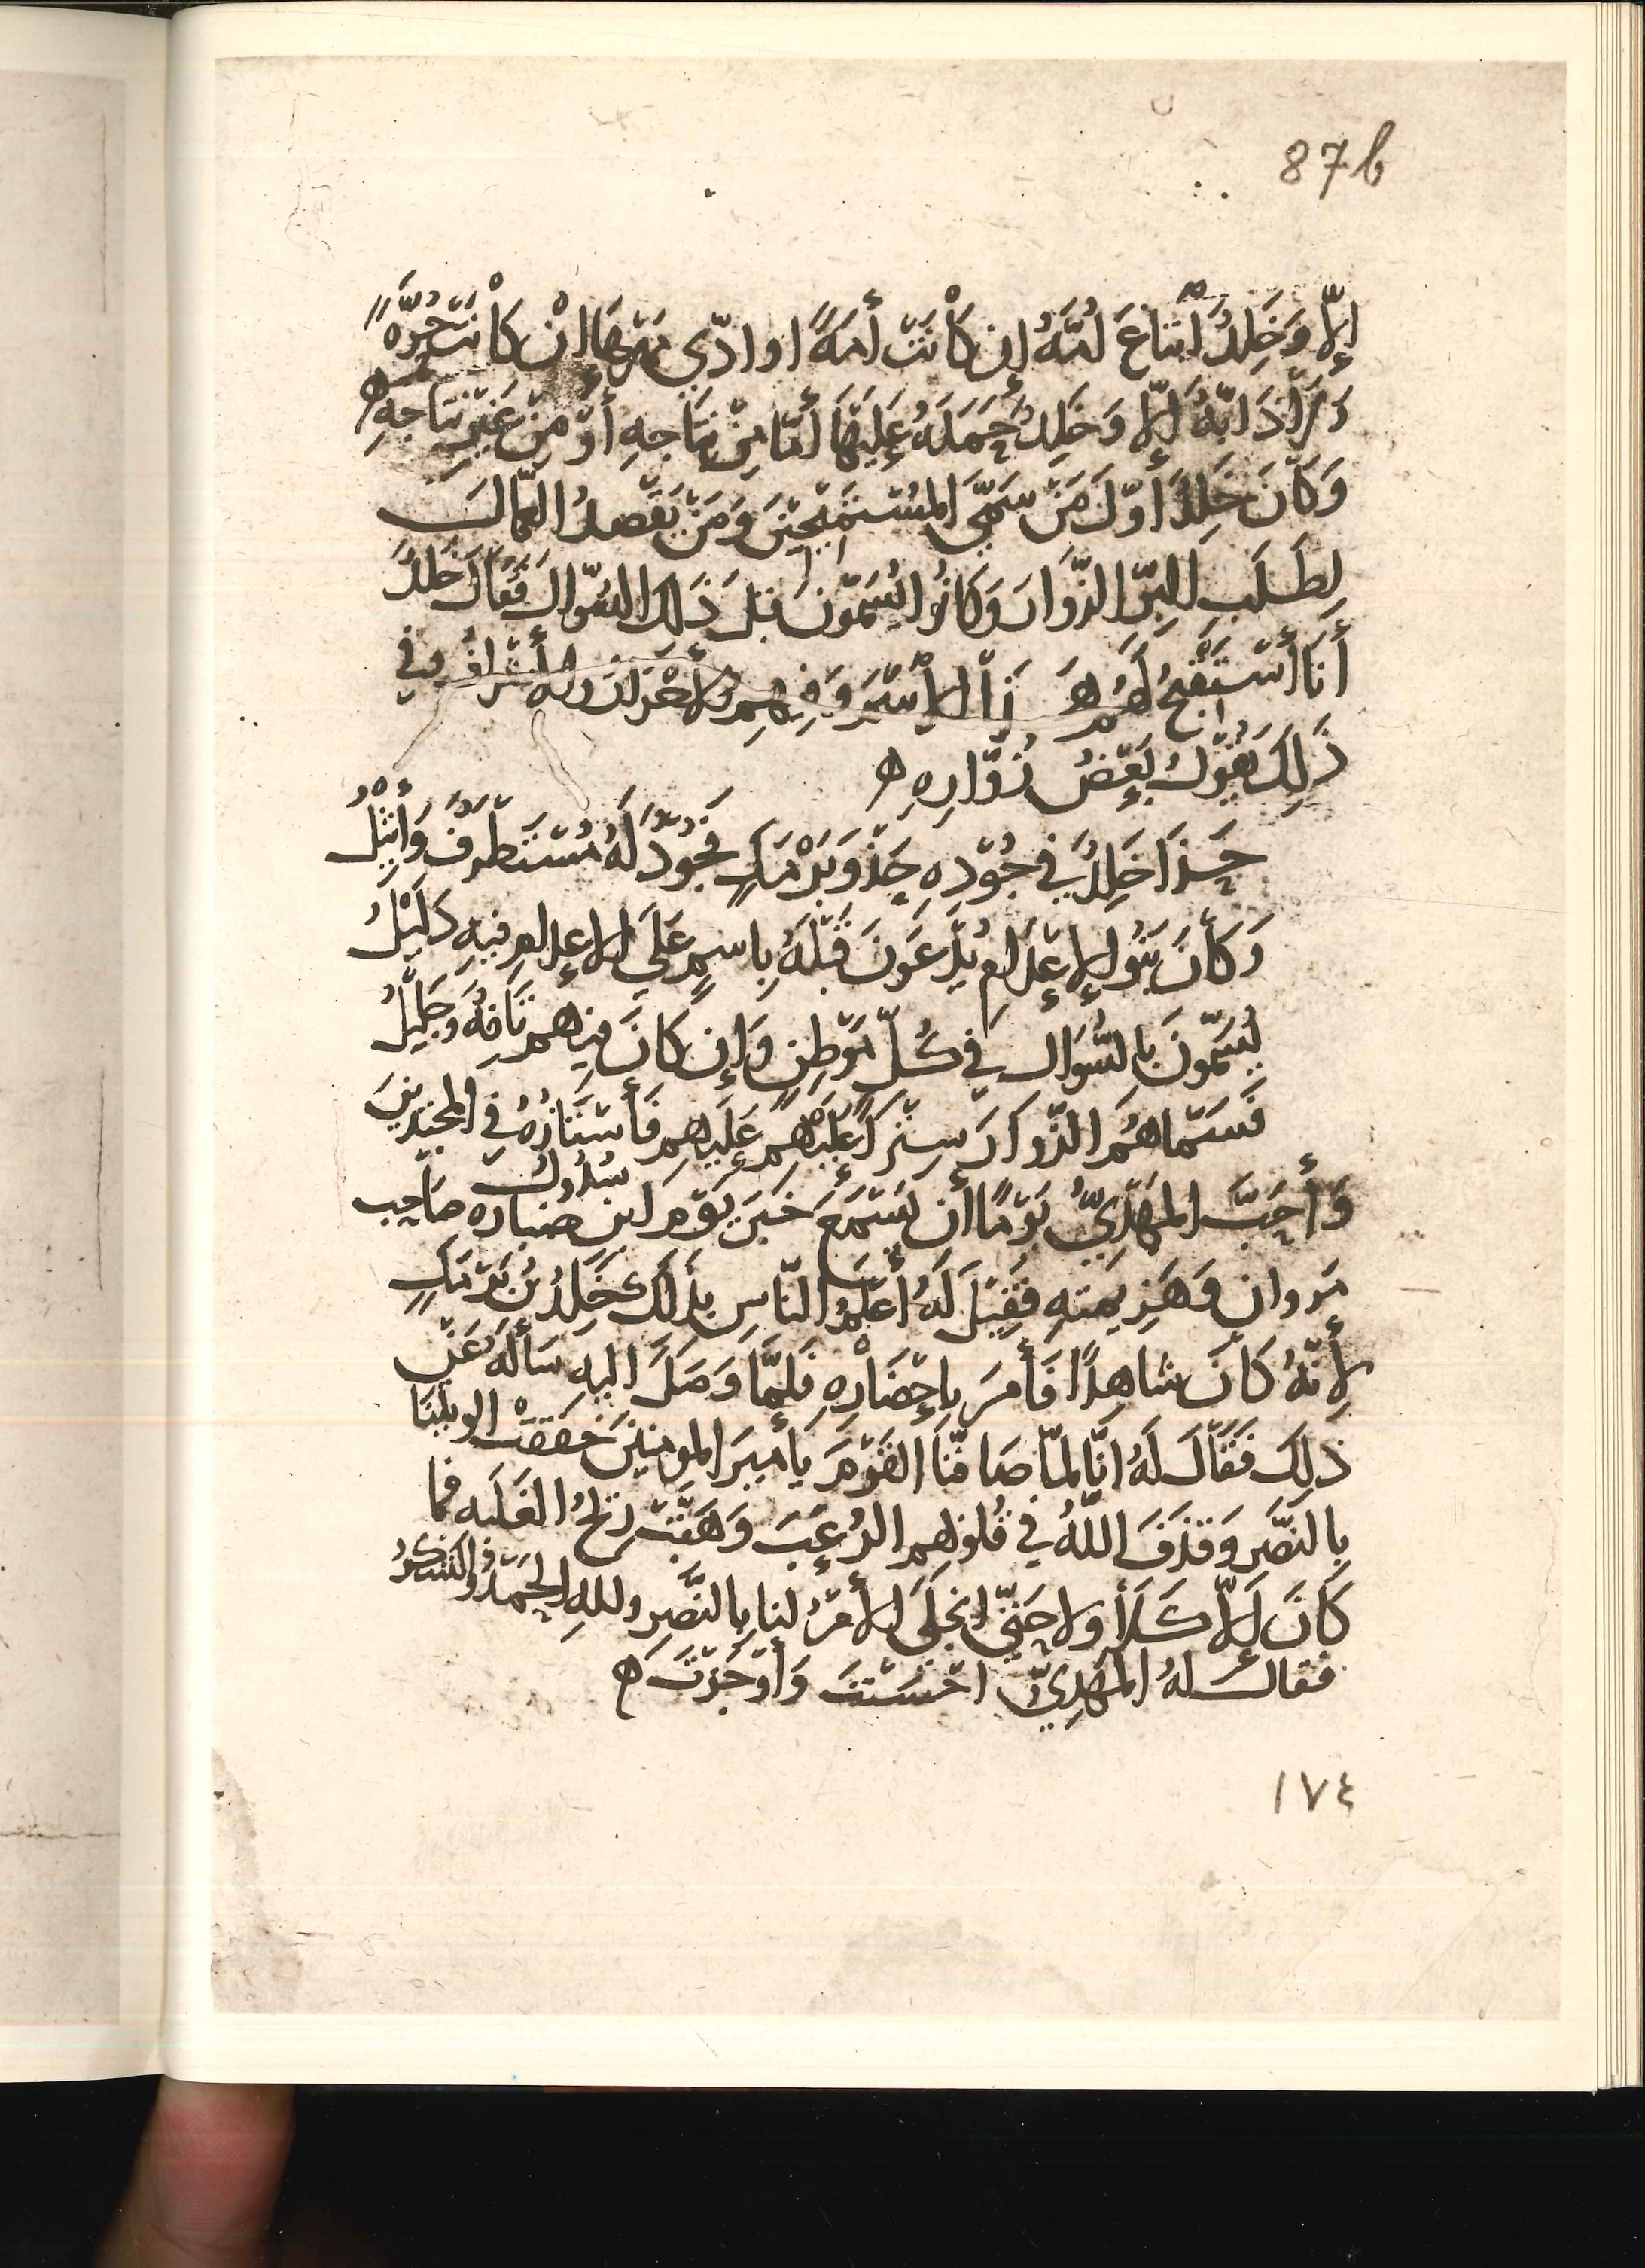 87b
إلّا وَخَلِدُ ابْتَاعَ أُمَّهُ إن كَانَتْ أمَةً او ادّى مَهْرَهَا إنْ كَانَتْ حُرَّةً
وَلا دَابَّةٌ إلّا وَخَلِدُ حَمَلَهُ عَلَيْهَا أمّا مِنْ نِتَاجِهِ أوْ مِنْ غَيْرِ نِتَاجِهِ ه
وَكَانَ خَلِدُ أوّلَ مَنْ سَمَّى المُسْتَمِيحِينَ وَمَنْ يَقْصدُ العمّالَ
لِطَلَبِ البِرِّ الزّوارَ وَكَانُوا يُسَمّونَ قبلَ ذَلِكَ السُؤّالَ فَقَالَ خَلِدُ
أنَا أسْتَقْبِحُ لَهُمْ هَذَا الاسْمَ وَفِيهِمِ الأحْرَارُ والأشْرَافُ وفي
ذَلِكَ يَقُوْلُ بَعْضُ زُوّارِهِ ه
حَذَا خَلِدُ في جُوْدِهِ حَذْوَ بَرْمَكٍ فَجُوْدٌ لَهُ مُسْتَطْرَفٌ وَأثِيْلُ
وَكَانَ بَنُو الإعْدَامِ يُدْعَوْنَ قَبْلَهُ بِاسمٍ عَلَى الاعدامِ فيهِ دَلِيْلُ
يُسَمّونَ بِالسُّوَالِ في كُلّ مَوْطِنٍ وَإن كَانَ فيهم نَافِهٌ وَجَلِيْلُ
فَسَمّاهُمُ الزّوارَ سِتْراً عَلَيْهِم فَأسْتَارُهُ في المُجْتَدِيْنَ سُدُوْلُ
وَأحَبَّ المَهْدِيُّ يَوْمًا أن يَسْمَعَ خَبَرَ يَوْمِ ابن ضباره صَاحِب
مَروان وَهَزِيمتِهِ فَقِيْلَ لَهُ أعْلَمُ النّاسِ بِذَلِكَ خَلِدُ بْنُ بَرْمَكٍ
لأنّهُ كَانَ شاهِدًا فَأمَرَ بِإحْضَارِهِ فَلَمّا وَصَلَ اليهِ سَألَهُ عَنْ
ذَلِكَ فَقَالَ لَهُ انّا لمّا صَافّنَا القَوْمَ يَا أميرَ المومنِيْنَ خَفَقَتْ الويتُنَا
بِالنَصْرِ وَقَذَفَ اللّهُ في قُلوْبِهِم الرُعْبَ وَهَبَّتْ رِيْحُ الغَلَبَه فما
كَانَ إلّا كَلَا ولا حَتّى انْجَلَى الأمْرُ لنا بِالنَّصْرِ وللهِ الحَمْدُ والشُكْرُ
فقالَ لهُ المَهْدِيّ احْسَنْتَ وَأوْجَزْتَ ه
١٧٤